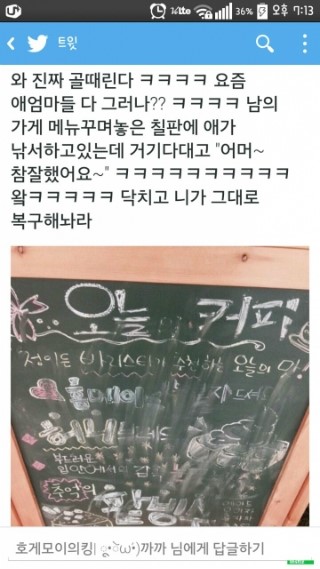 36% 오후 7:13
트윗
와 진짜 골때린다 ㅋㅋㅋㅋ 요즘
애엄마들 다 그러나?? ㅋㅋㅋㅋ 남의
가게 메뉴꾸며놓은 칠판에 애가
낚서하고있는데 거기다대고 "어머~
참잘했어요~" ㅋㅋㅋㅋㅋㅋㅋㅋㅋㅋ
왘ㅋㅋㅋㅋㅋ 닥치고 니가 그대로
복구해놔라
오늘의 커피
정이든 바리스타가 추천하는 오늘의
추억의
호게모이의킹 까까 님에게 답글하기